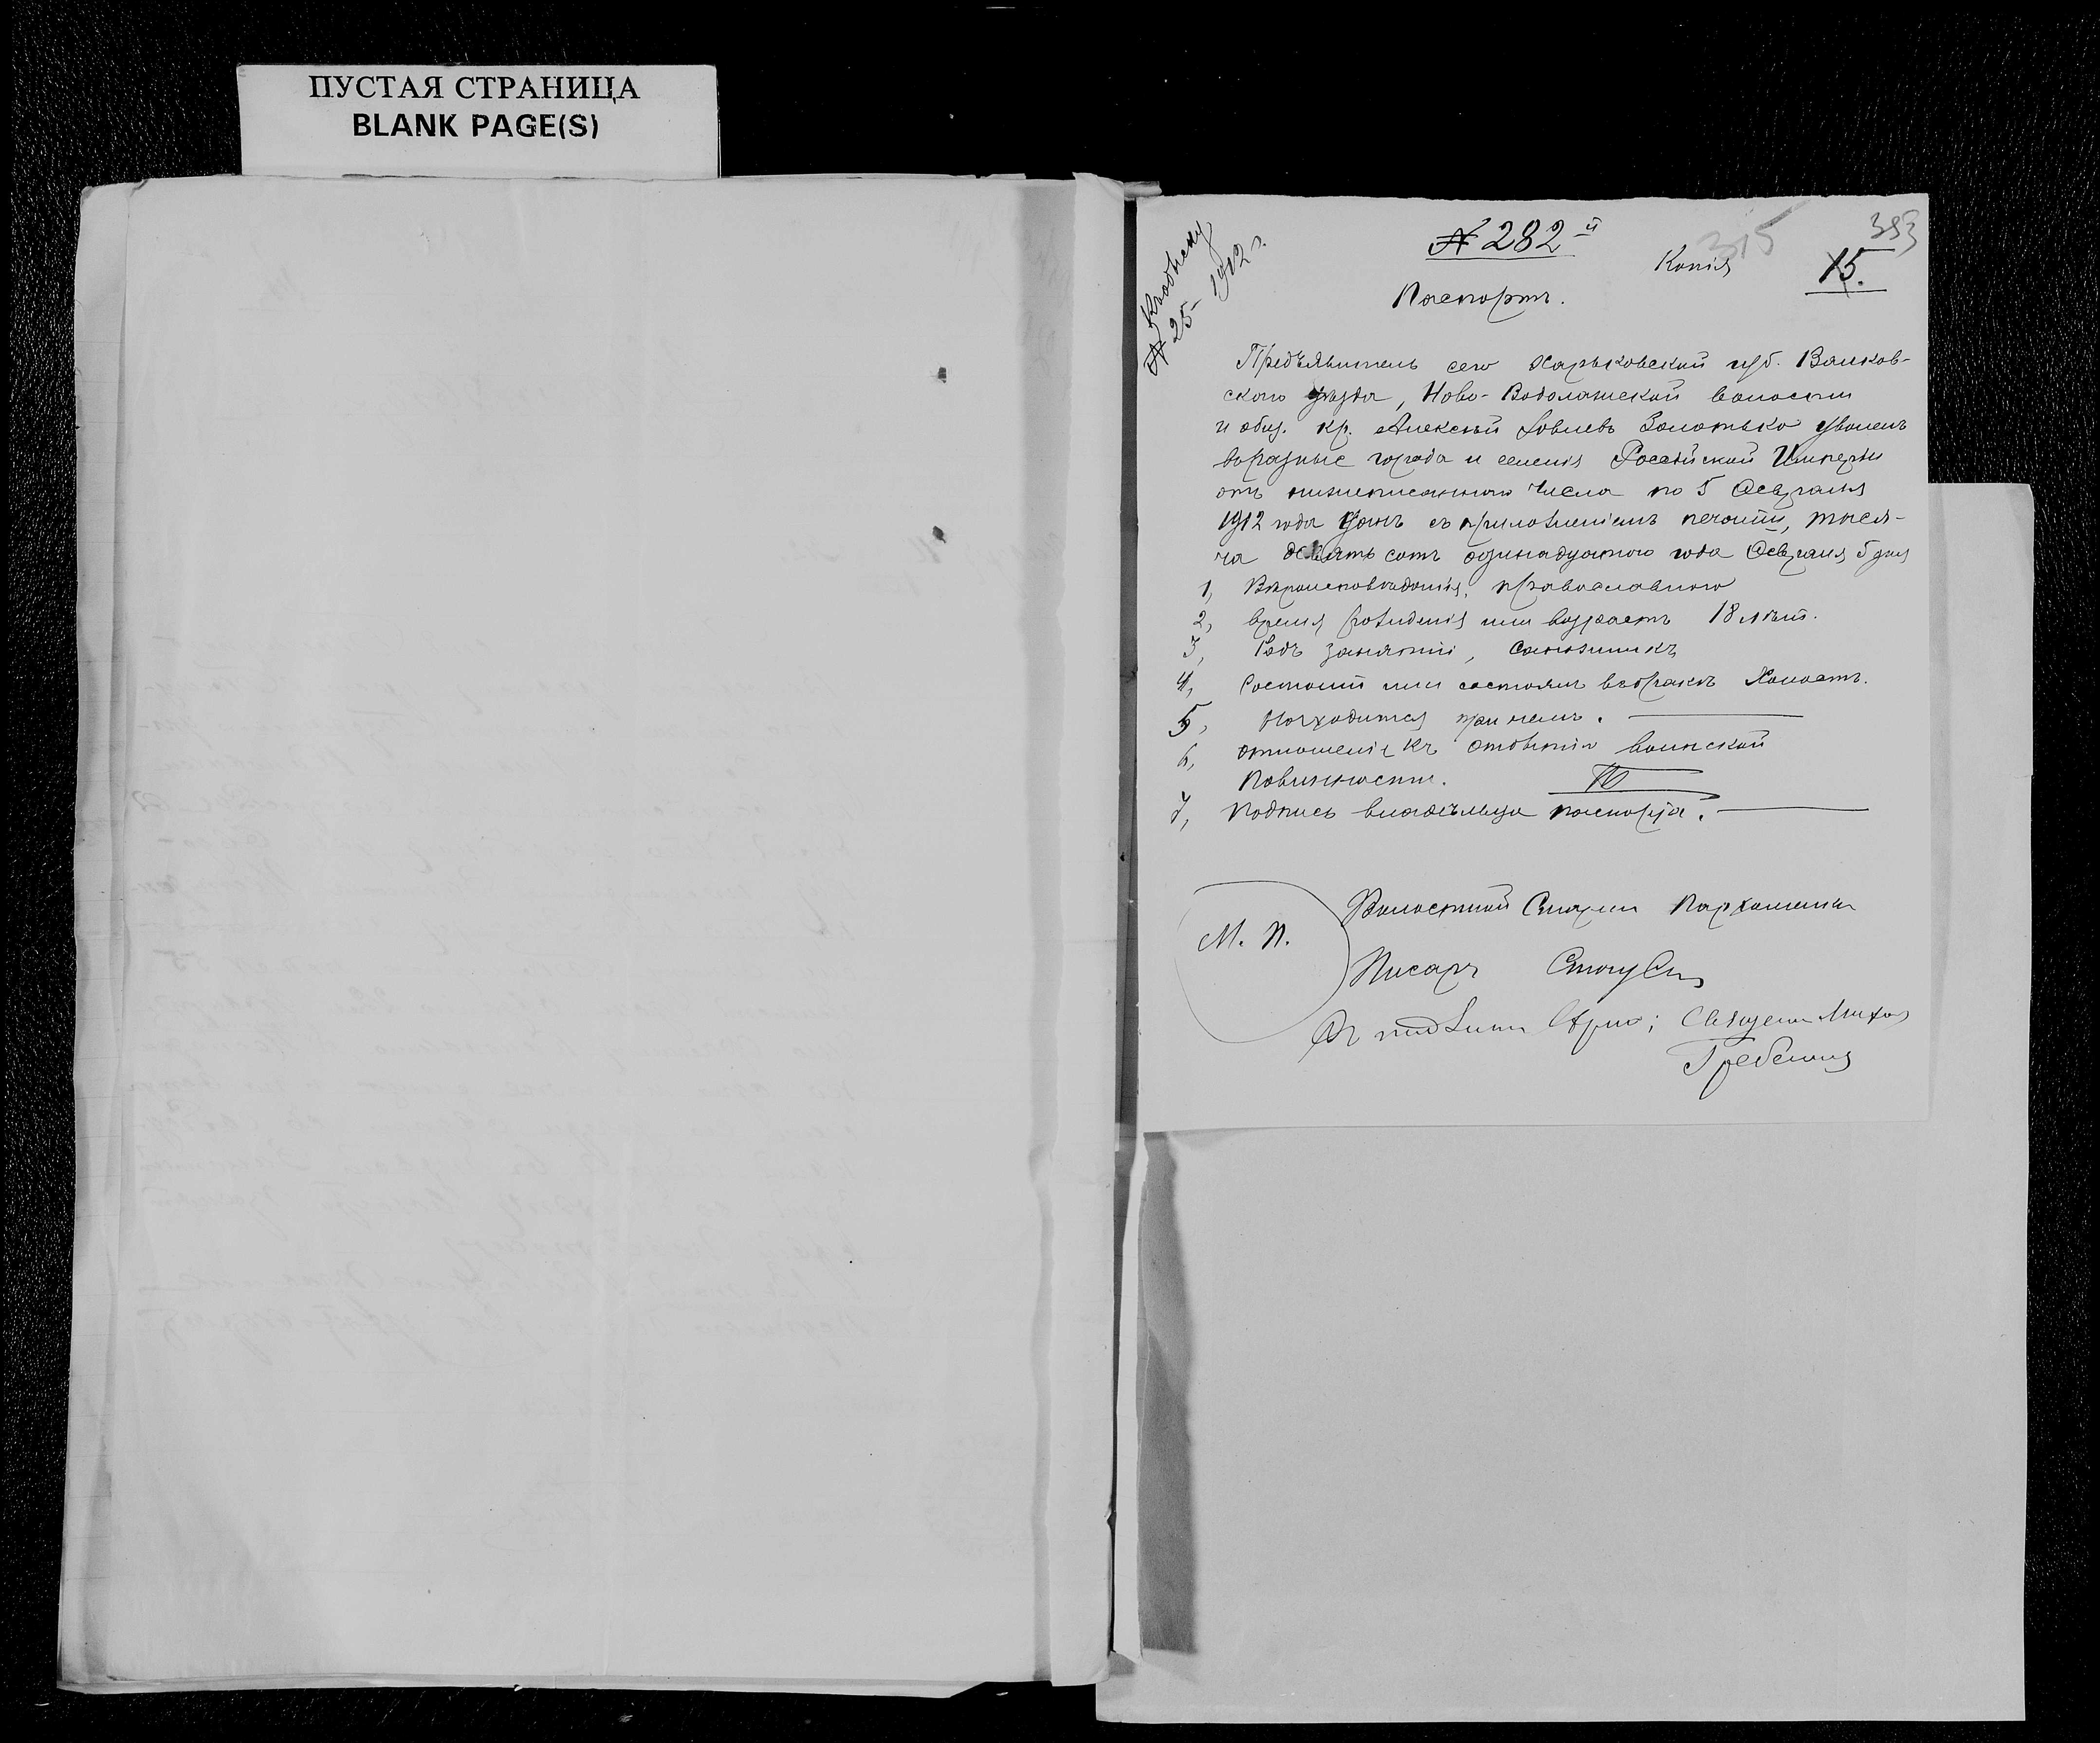 ПУСТАЯ СТРАНИЦА
BLANK PAGE(S)
№ 282й
Копія
315
393
15.
№ 25 – 1912 г.
Паспортъ.
Предъявитель сего Харьковской губ. Валков-
скаго уѣзда, Ново-Водолажской волости
и общ. кр. Алексѣй Іовлевъ Золотько уволенъ
въ разные города и селенія Россійской Имперіи
отъ нижеписаннаго числа по 5 Февраля
1912 года Данъ съ приложеніемъ печати, тыся-
ча девять сотъ одинадцатого года Февраля 5 дня
1, Вѣроисповѣданія, православнаго
2, время рожденія или возрастъ 18 лѣтъ.
3, Родъ занятій, сапожникъ
4, Состоитъ или состоялъ въ бракѣ Холостъ.
5, Находится при немъ. —
6, отношеніе къ отбытію воинской
повинности.
7, Подпись владѣльца паспорта. —
М. П.
Волостной Старши Пархоменко
Писарь
Священ Миха
Гребенни